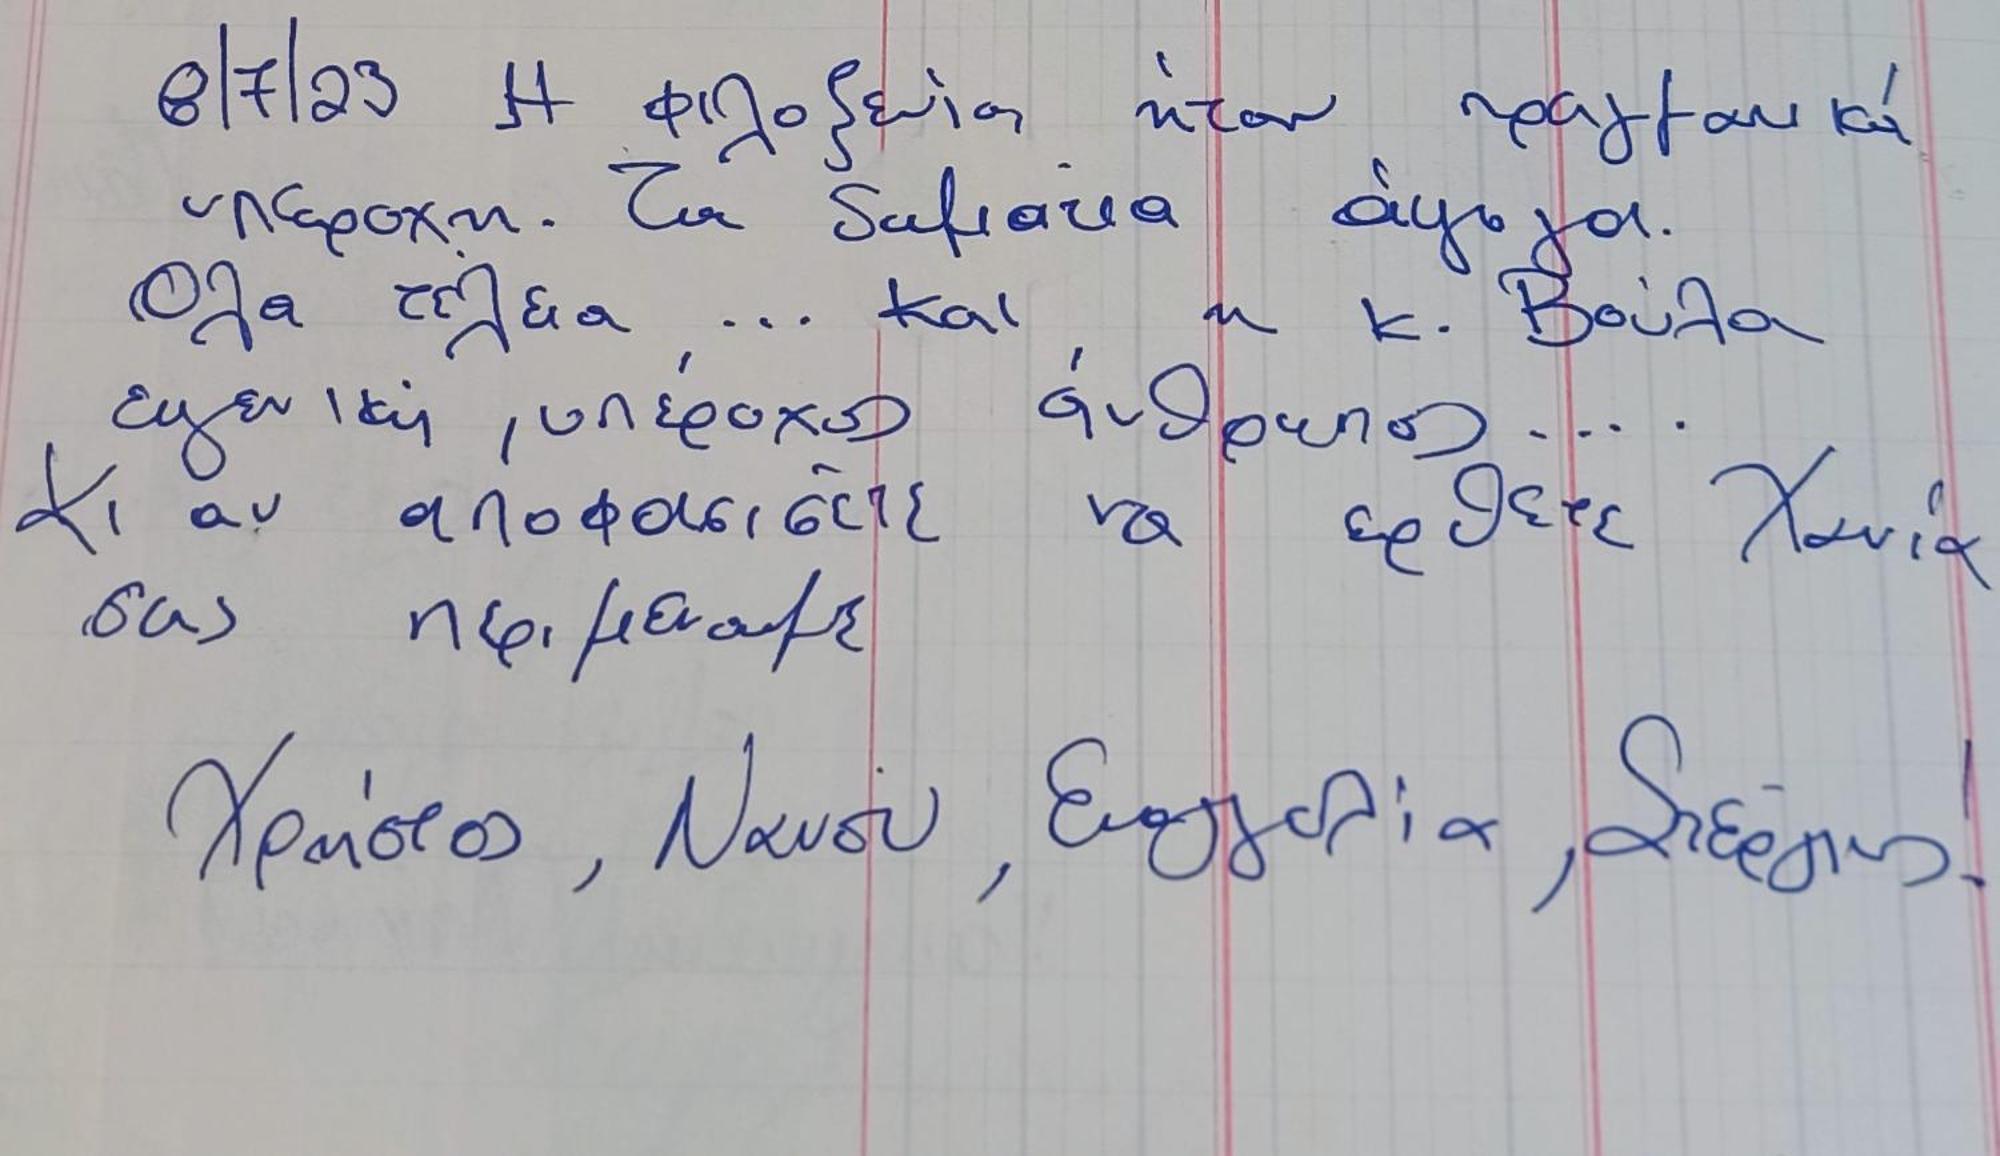 8/7/23 Η φιλοξενία ήταν πραγματικά
υπέροχη. Τα δωμάτια άψογα.
Όλα τέλεια ... και η κ. Βούλα
ευγενική, υπέροχος άνθρωπος ....
Κι αν αποφασίσετε να ερθετε Χανιά
σας περιμενουμε
Χρήστος, Νανσύ, Ευαγγελία, Στέργιος!